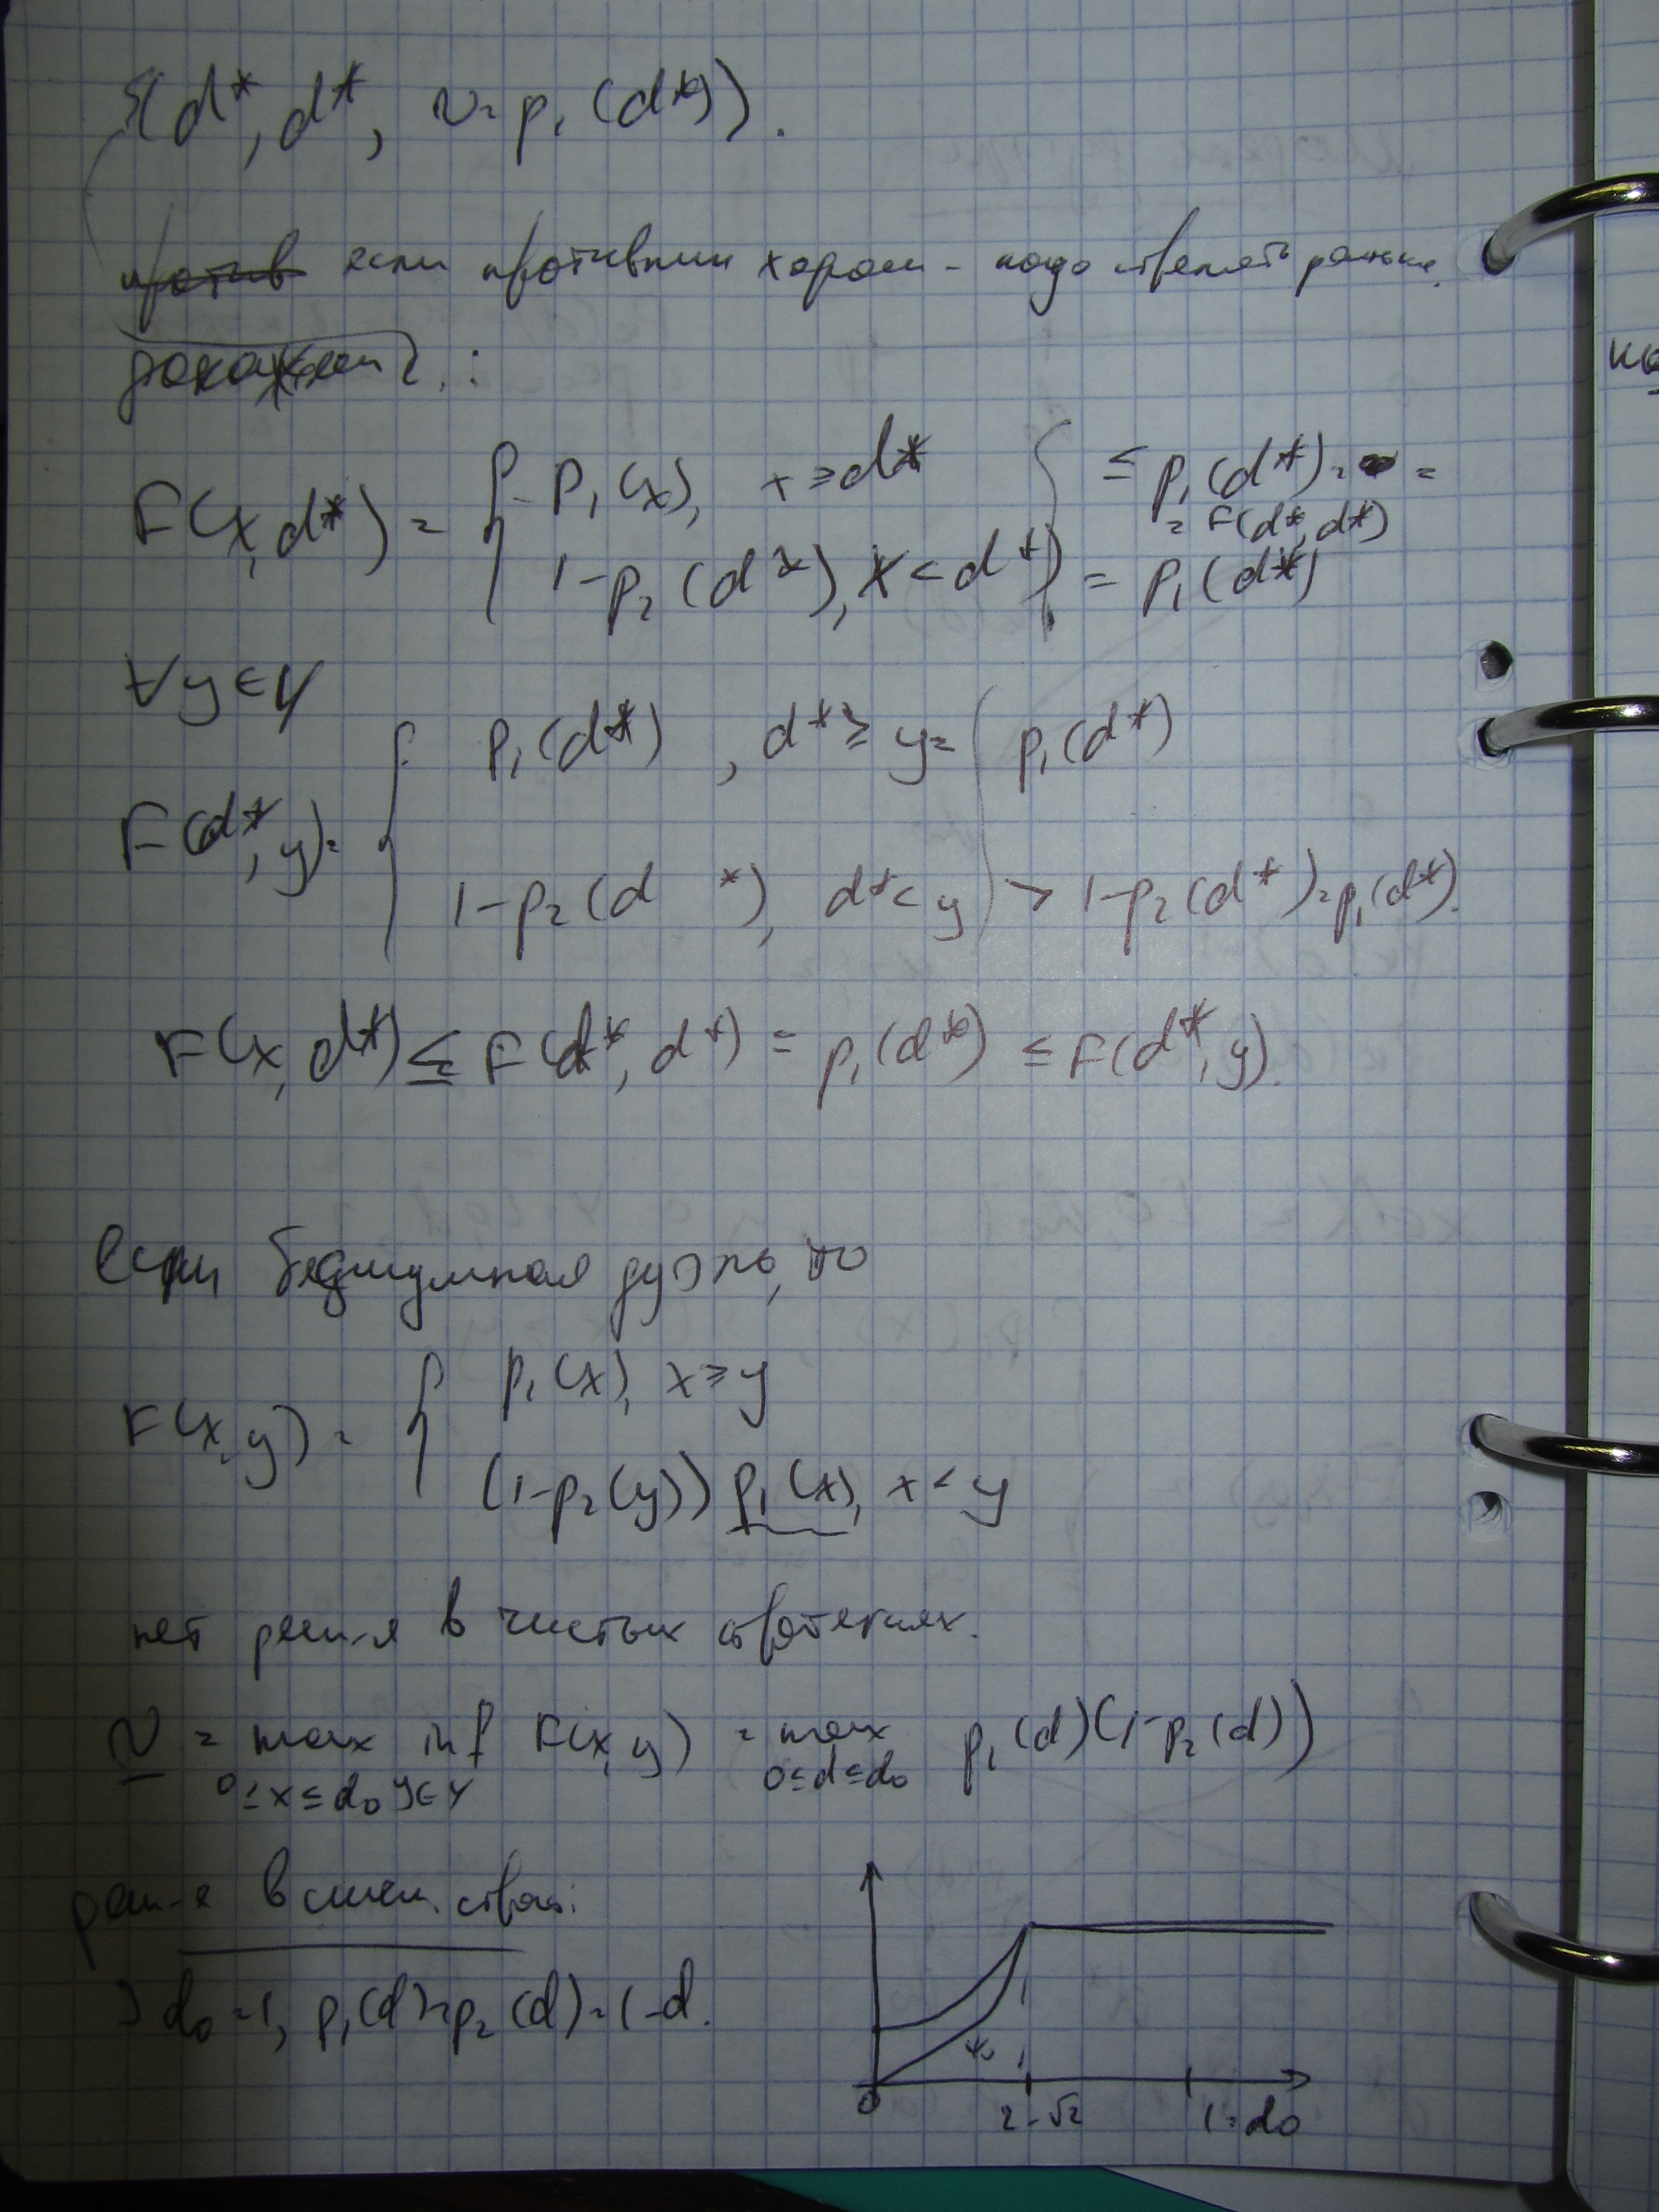 {d*, d*, v = p₁(d*)}.
против если противник хорош - надо стрелять раньше.
докажем :
F(x, d*) = { p₁(x), x ≥ d* } ≤ p₁(d*) = = F(d*, d*)
1-p₂(d*), x < d* } = p₁(d*)
∀y∈Y
F(d*, y) = { p₁(d*), d* ≥ y = p₁(d*)
1-p₂(d *), d* < y > 1-p₂(d*) = p₁(d*).
F(x, d*) ≤ F(d*, d*) = p₁(d*) ≤ F(d*, y).
Если бесшумная дуэль, то
F(x, y) = { p₁(x), x ≥ y
(1-p₂(y)) p₁(x), x < y
нет реш-я в чистых стратегиях.
v = max inf F(x, y) = max p₁(d)(1-p₂(d))
0≤x≤d₀ y∈Y 0≤d≤d₀
реш-е в смеш. страт:
d₀ = 1, p₁(d) = p₂(d) = 1-d.
0 2-√2 1=d₀